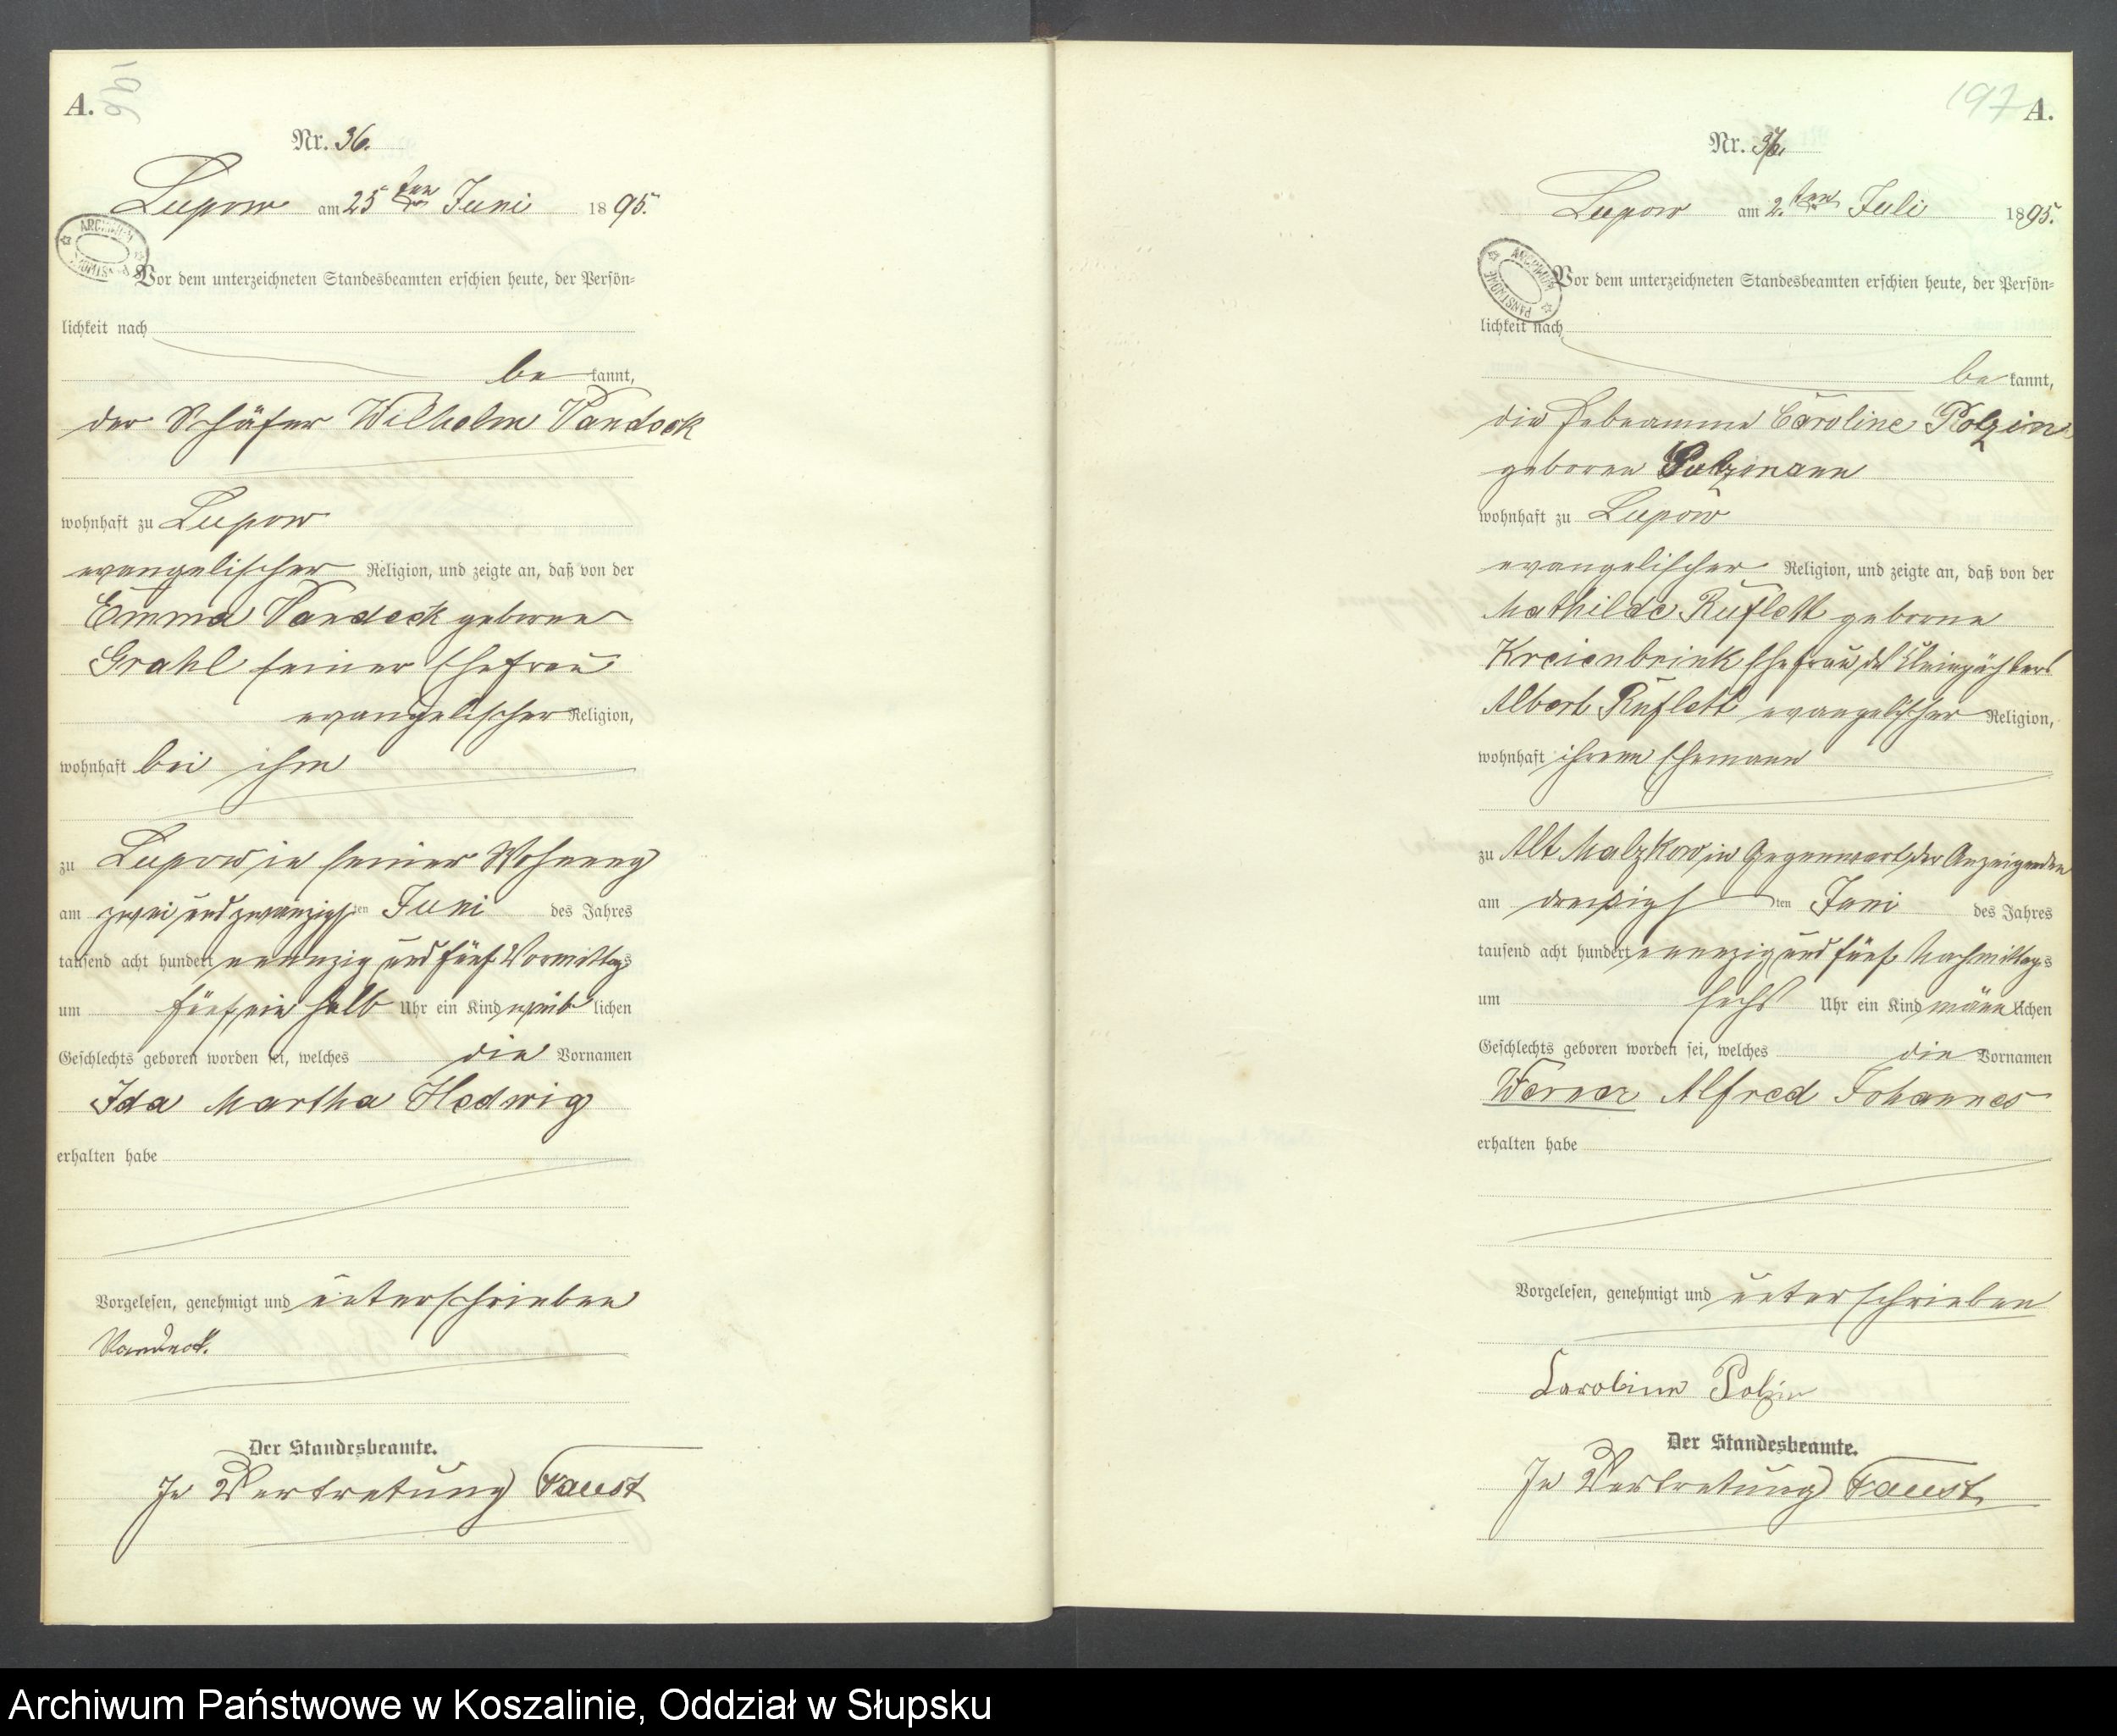 A.
196
Nr. 36.
Lupow am 25ten Juni 1895.
Vor dem unterzeichneten Standesbeamten erschien heute, der Persön-
lichkeit nach
be kannt,
der Schäfer Wilhelm Vandeck
wohnhaft zu Lupow
evangelischer Religion, und zeigte an, daß von der
Emma Vandeck geborene
Grahl seiner Ehefrau
evangelischer Religion,
wohnhaft bei ihm
zu Lupow in seiner Wohnung
am zwei und zwanzigsten Juni des Jahres
tausend acht hundert neunzig und fünf Vormittags
um fünf ein halb Uhr ein Kind weiblichen
Geschlechts geboren worden sei, welches die Vornamen
Ida Martha Hedwig
erhalten habe
Vorgelesen, genehmigt und unterschrieben
Vandeck.
Der Standesbeamte.
In Vertretung Faust
197 A.
Nr. 37.
Lupow am 2.ten Juli 1895.
ARCHIWUM PAŃSTWOWE
Vor dem unterzeichneten Standesbeamten erschien heute, der Persön-
lichkeit nach
be kannt,
die Hebeamme Caroline Polzin
geborene Salzmann
wohnhaft zu Lupow
evangelischer Religion, und zeigte an, daß von der
Mathilde Ruflett geborne
Kreienbrink Ehefrau des
Albert Ruflett evangelischer Religion,
wohnhaft ihrem Ehemann
zu Alt Malzkow in Gegenwart der Anzeigenden
am dreißigsten Juni des Jahres
tausend acht hundert neunzig und fünf Nachmittags
um sechs Uhr ein Kind männlichen
Geschlechts geboren worden sei, welches die Vornamen
Werner Alfred Johannes
erhalten habe
Vorgelesen, genehmigt und unterschrieben
Caroline Polzin
Der Standesbeamte.
In Vertretung Faust
Archiwum Państwowe w Koszalinie, Oddział w Słupsku